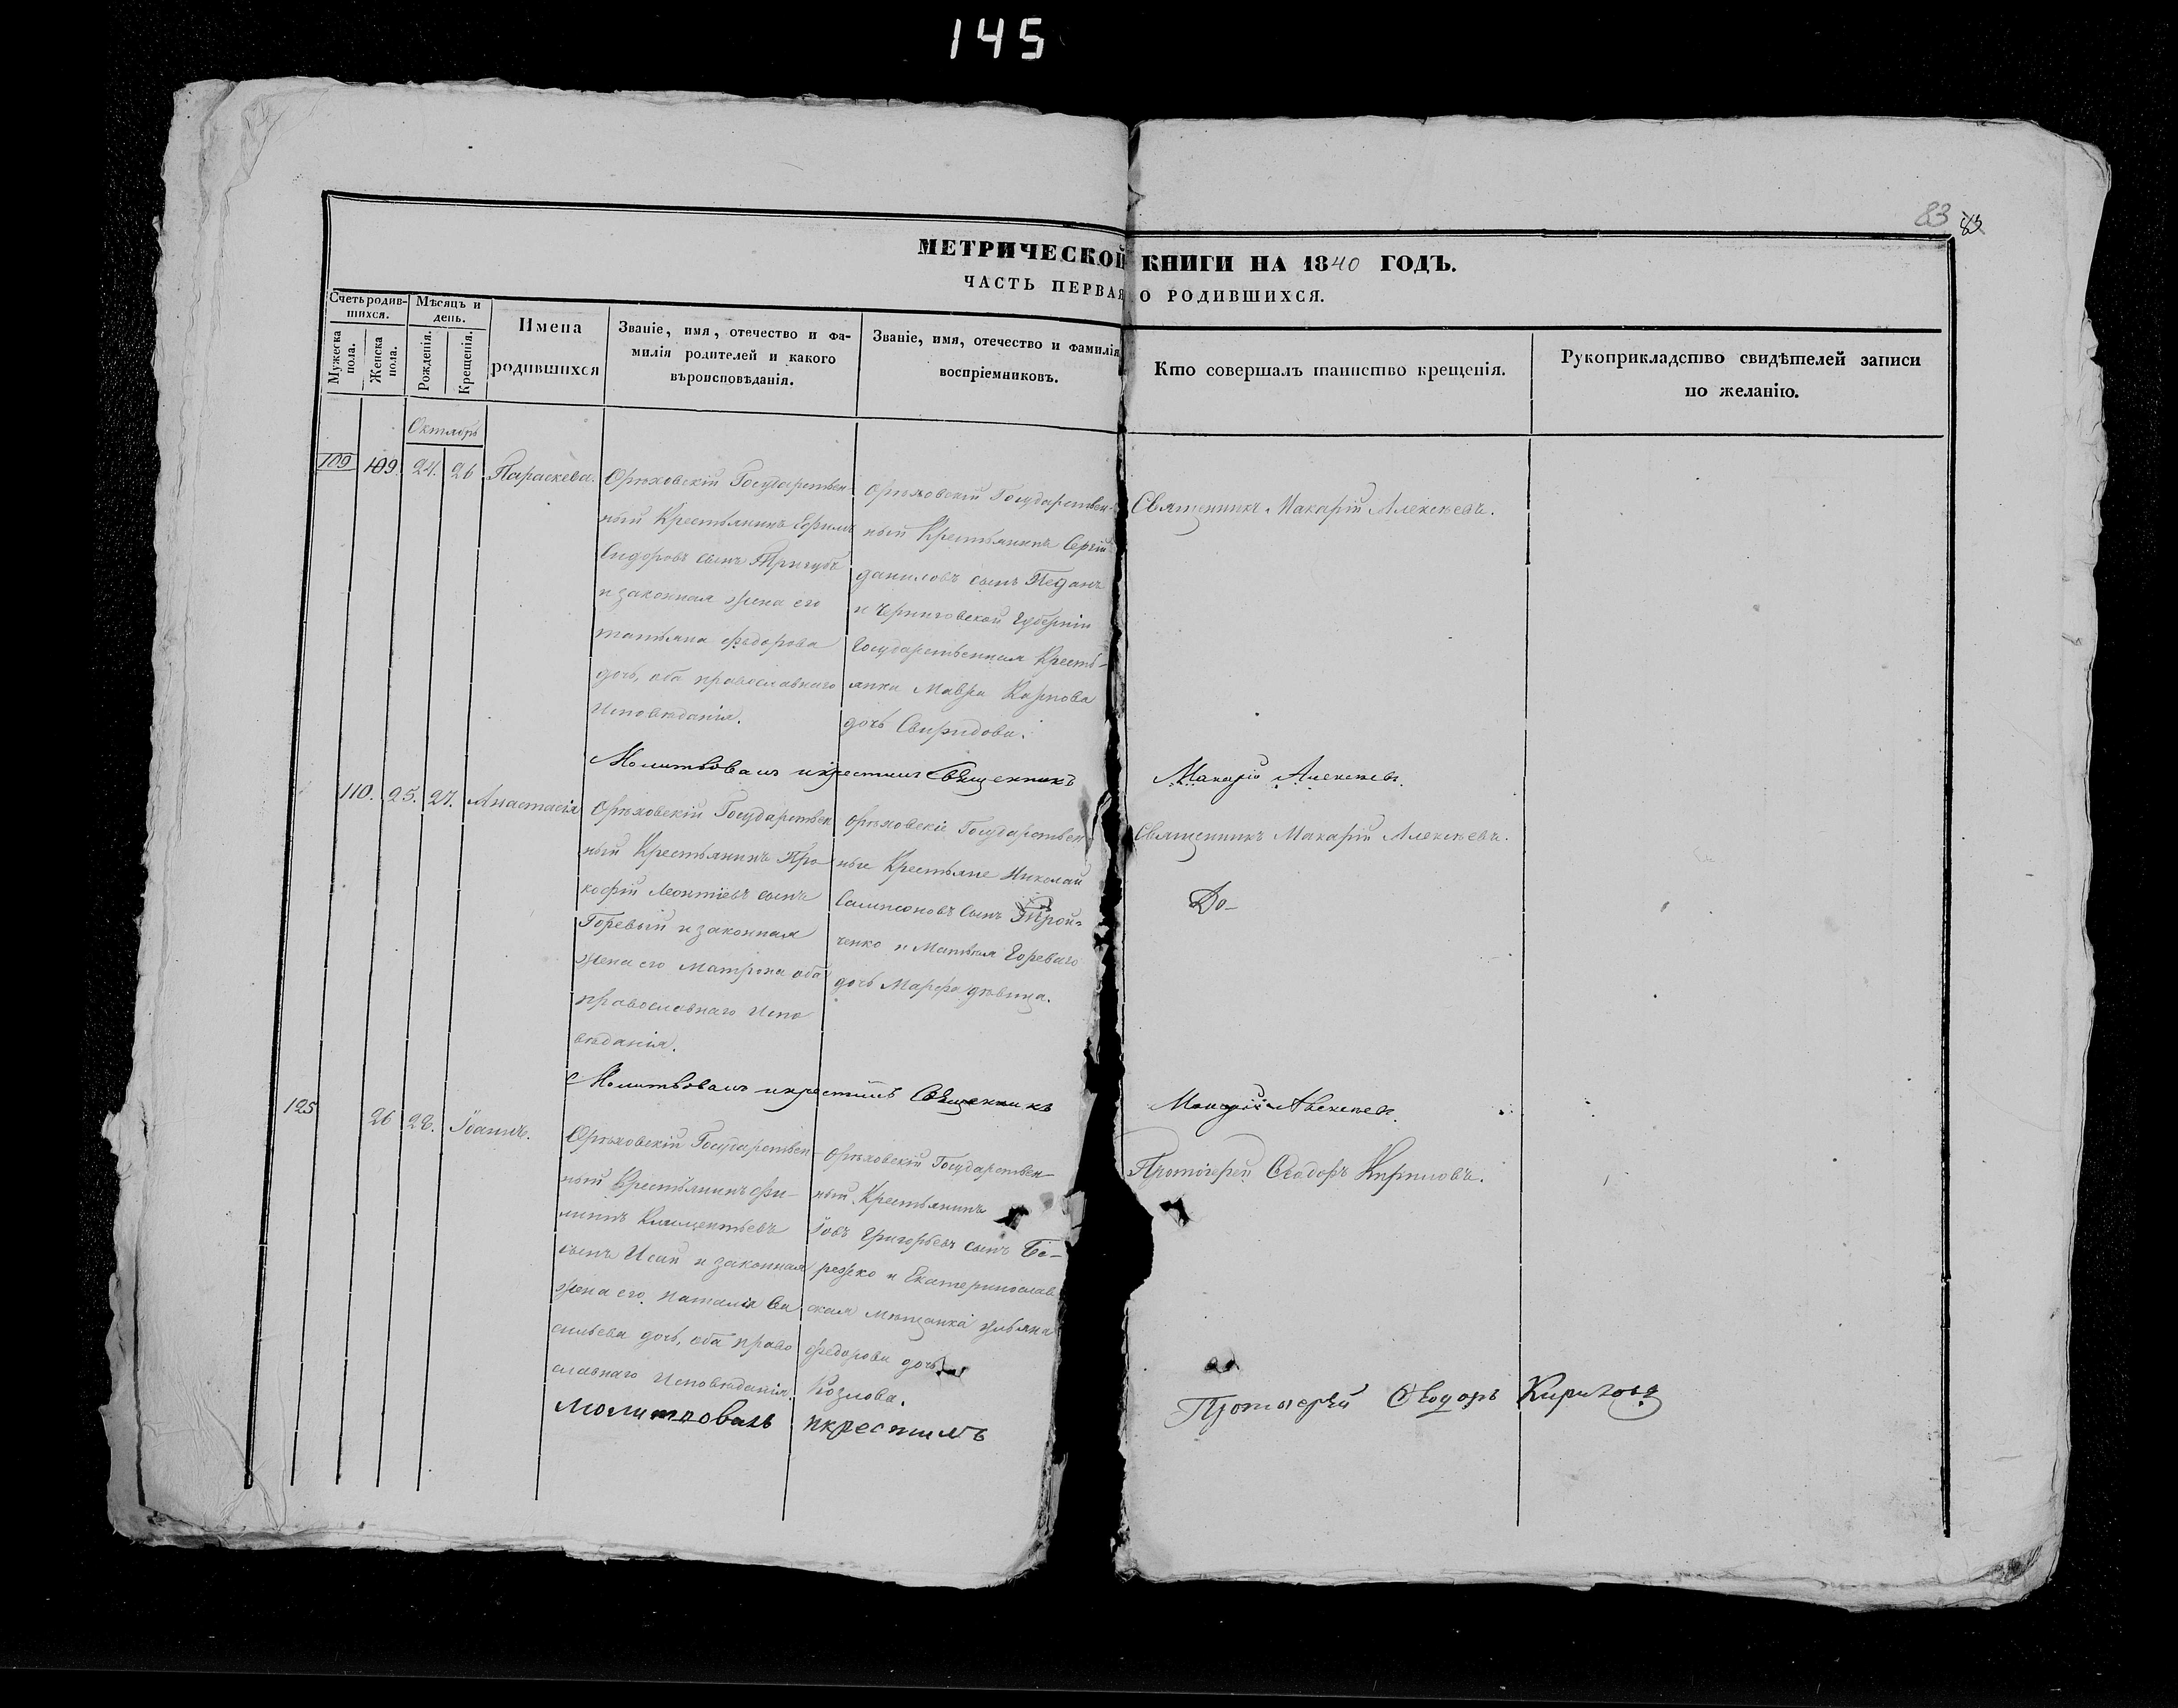 145
83 83
МЕТРИЧЕСКОЙ КНИГИ НА 1840 ГОДЪ.
ЧАСТЬ ПЕРВАЯ О РОДИВШИХСЯ.
Счетъ родив-
шихся.
Мужеска пола.
Женска пола.
Мѣсяцъ и
день.
Рожденія.
Крещенія.
Имена
родившихся
Званіе, имя, отечество и фа-
милія родителей и какого
вѣроисповѣданія.
Званіе, имя, отечество и фамилія
воспріемниковъ.
Кто совершалъ таинство крещенія.
Рукоприкладство свидѣтелей записи
по желанію.
Октябрь
109 109. 24. 26 Параскева.
Орѣховскій Государствен-
ный Крестьянинъ Ефимъ
Сидоровъ сынъ Тригубъ
и законная жена его
татьяна федорова
дочь, оба православнаго
Исповѣданія.
Орѣховскій Государствен-
ный Крестьянинъ Сергій
даниловъ сынъ Педанъ
и Черниговской Губерніи
Государственная Кресть-
янка Мавра Карпова
дочь Свиридова.
Священникъ Макарій Алексѣевъ.
Молитвовалъ икрестилъ Священникъ Макарій Алексѣевъ.
110. 25. 27. Анастасія
Орѣховскій Государствен
ный Крестьянинъ Про
кофій Леонтіевъ сынъ
Горевый и законная
жена его Матрона оба
православнаго Испо
вѣданія.
Орѣховскіе Государствен
ные Крестьяне Николай
Сампсоновъ сынъ Трой-
ченко и Горевого
дочь Марфа дѣвица.
Священникъ Макарій Алексѣевъ.
До-
Молитвовалъ икрестилъ Священникъ Макарій Алексѣевъ.
125 26 28. Іоаннъ.
Орѣховскій Государствен-
ный Крестьянинъ фи-
липпъ Климентьевъ
сынъ Исай и законная
жена его Наталія Ва
сильева дочь, оба право
славнаго Исповѣданія.
Орѣховскій Государствен-
ный Крестьянинъ
Іовъ Григорьевъ сынъ Бе-
режко и Екатеринослав
ская мѣщанка ульяна
федорова дочь
Козлова.
Протоіерей Феодоръ Кириловъ.
Молитвовалъ икрестилъ Протоіерей Феодоръ Кириловъ